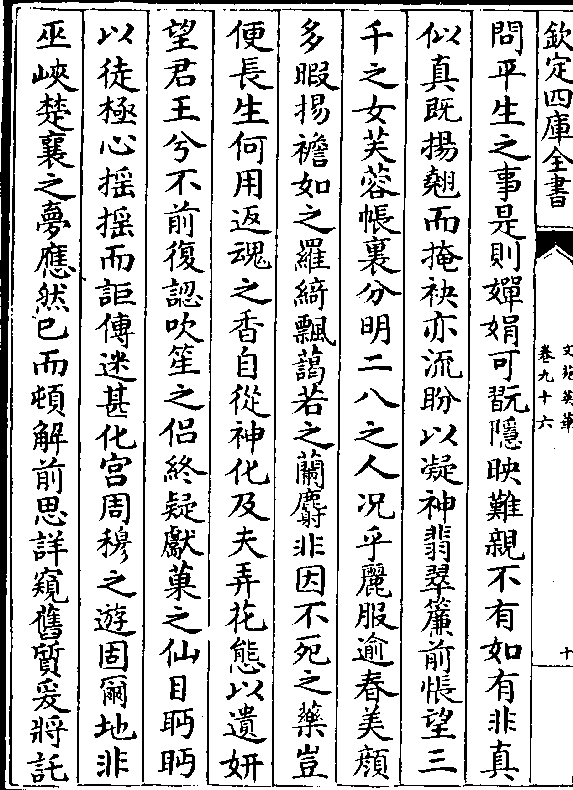 欽定四庫全書
文苑英華
卷九十六
十
問平生之事是則嬋娟可翫隱映難親不有如有非真
似真既揚翹而掩袂亦流盼以凝神翡翠簾前悵望三
千之女芙蓉帳裏分明二八之人況乎麗服逾春美顔
多暇掦襜如之羅綺飄藹若之蘭麝非因不死之藥豈
便長生何用返魂之香自從神化及夫弄花態以遺妍
望君王兮不前復認吹笙之侣終疑獻菓之仙目眄眄
以徒極心摇摇而詎傳迷甚化宫周穆之遊固爾地非
巫峽楚襄之夢應然已而頓解前思詳窺舊質爰將託